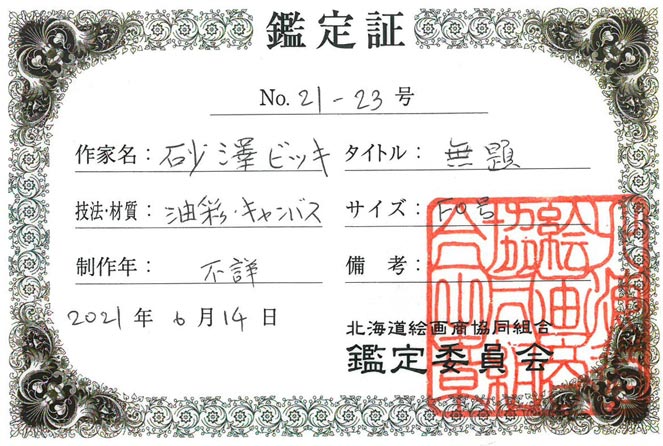 鑑定証
No. 21-23 号
作家名：砂澤ビッキ タイトル：無題
技法・材質：油彩・キャンバス サイズ：F0号
制作年：不詳 備考：
2021年 6月14日
北海道絵画商協同組合
鑑定委員会